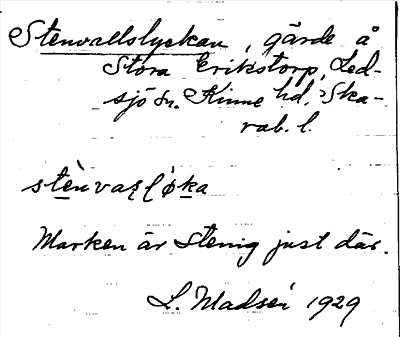 Stenvallslyckan, gärde å
Stora Erikstorp, Led-
sjö sn. Kinne hd, Ska-
rab. l.
Marken är stenig just där.
L. Madsén 1929